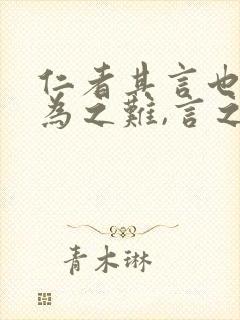 仁者其言也
為之難,言之
青木琳